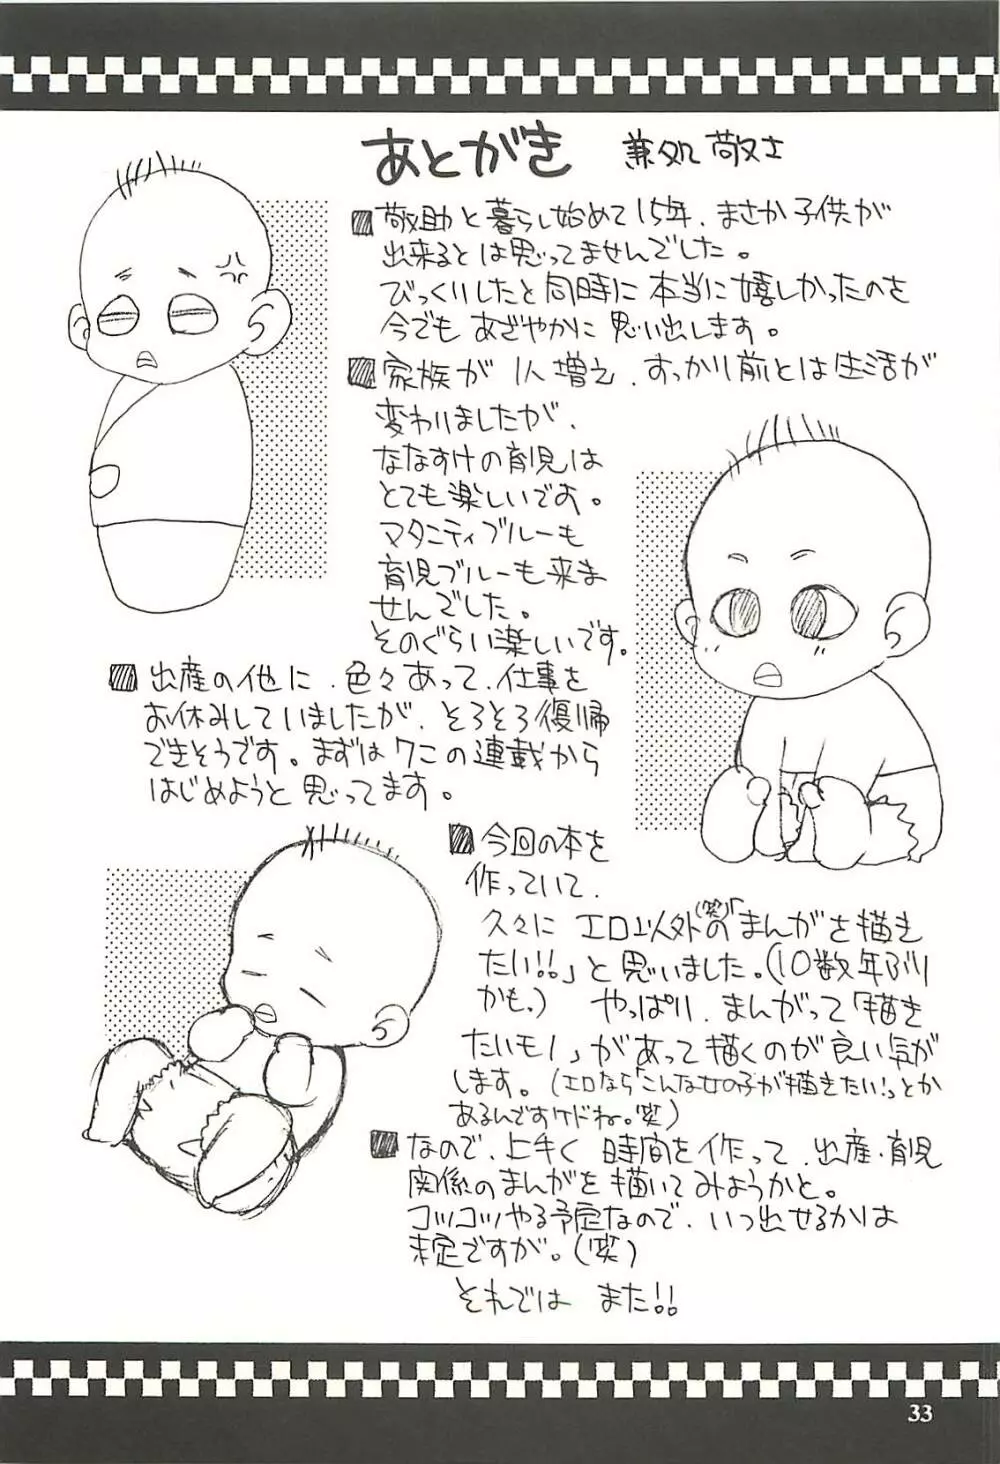 あとがき 兼処 敬士
■敬助と暮らし始めて15年、まさか子供が
出来るとは思ってませんでした。
びっくりしたと同時に本当に嬉しかったのを
今でもあざやかに思い出します。
■家族が1人増え、すっかり前とは生活が
変わりましたが、
ななすけの育児は
とても楽しいです。
マタニティブルーも
育児ブルーも来ま
せんでした。
そのぐらい楽しいです。
■出産の他に、色々あって、仕事を
お休みしていましたが、そろそろ復帰
できそうです。まずはクニの連載から
はじめようと思ってます。
■今回の本を
作っていて、
久々にエロ以外の(笑)「まんがを描き
たい!!」と思いました。(10数年ぶり
かも。) やっぱり、まんがって「描き
たいモノ」があって描くのが良い気が
します。(エロなら「こんな女の子が描きたい!」とか
あるんですけドね。笑)
■なので、上手く時間を作って、出産・育児
関係のまんがを描いてみようかと。
コツコツやる予定なので、いつ出せるかは
未定ですが。(笑)
それでは また!!
33